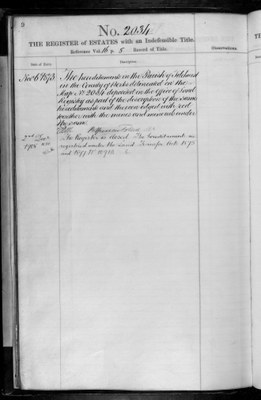 No. 2034
THE REGISTER of ESTATES with an Indefeasible Title.
Reference Vol. 16 p. 5 Record of Title.
Date of Entry.
Description.
Observations.
Nov 6 1873
The hereditaments in the Parish of
in the County of Berks delineated on the
Map No 2034 deposited in the Office of Land
Registry as part of the description of the same
hereditaments and therein edged with red
together with the mines and minerals under
the same.
The Register is closed. The hereditament is
registered under the Land Transfer Acts 1875
and 1897